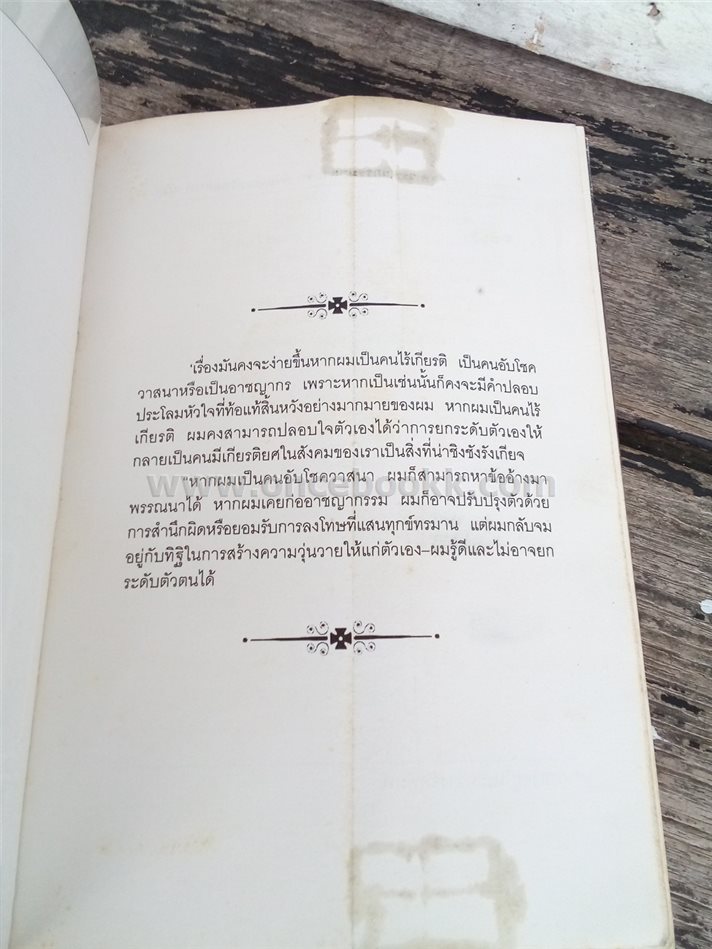 'เรื่องมันคงจะง่ายขึ้นหากผมเป็นคนไร้เกียรติ เป็นคนอับโชค
วาสนาหรือเป็นอาชญากร เพราะหากเป็นเช่นนั้นก็คงจะมีคำปลอบ
ประโลมหัวใจที่ท้อแท้สิ้นหวังอย่างมากมายของผม หากผมเป็นคนไร้
เกียรติ ผมคงสามารถปลอบใจตัวเองได้ว่าการยกระดับตัวเองให้
กลายเป็นคนมีเกียรติยศในสังคมของเราเป็นสิ่งที่น่าชิงชังรังเกียจ
'หากผมเป็นคนอับโชควาสนา ผมก็สามารถหาข้ออ้างมา
www.oncebookk.com
พรรณนาได้ หากผมเคยก่ออาชญากรรม ผมก็อาจปรับปรุงตัวด้วย
การสำนึกผิดหรือยอมรับการลงโทษที่แสนทุกข์ทรมาน แต่ผมกลับจม
อยู่กับทิฐิในการสร้างความวุ่นวายให้แก่ตัวเอง–ผมรู้ดีและไม่อาจยก
ระดับตัวตนได้